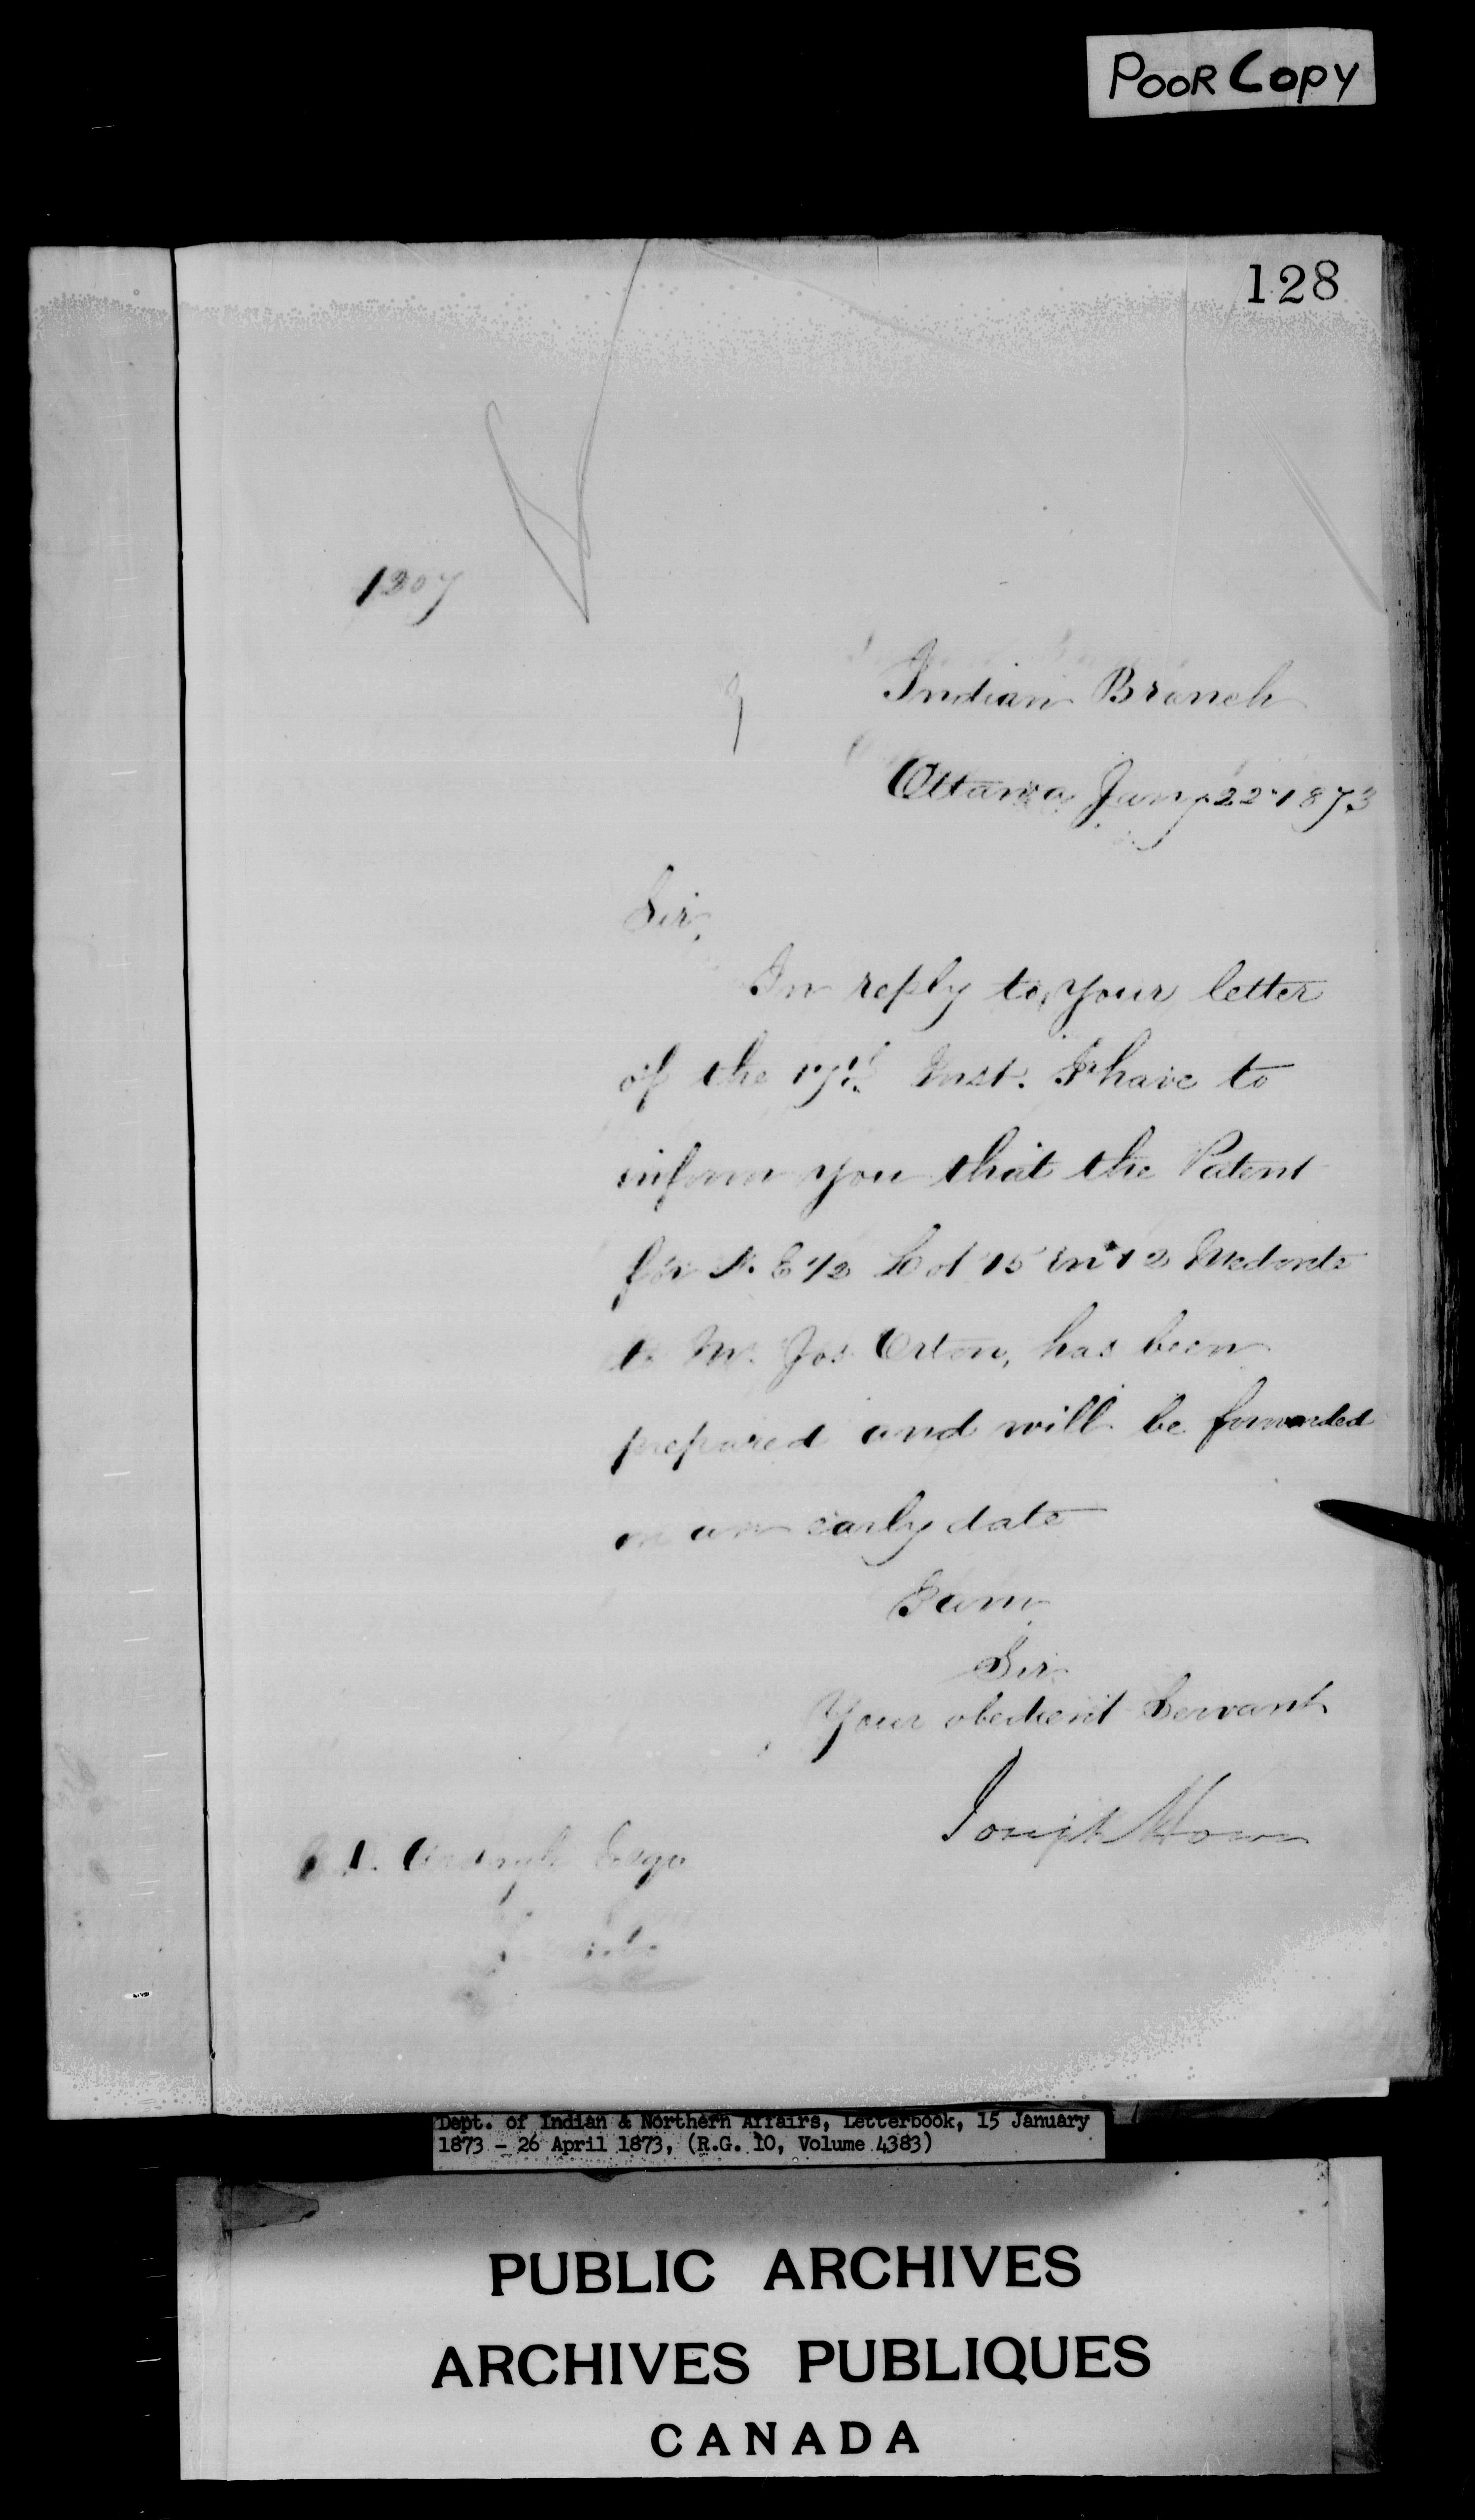 POOR COPY
128
1207
Indian Branch
Ottawa Jany 22 1873
Sir,
In reply to your letter
of the 17th Inst. I have to
inform you that the Patent
for N. E 1/2 Lot 15 in 12 Medonte
to Mr. Jos Orton, has been
prepared and will be forwarded
on an early date
I am
Sir
Your obedient Servant
Joseph Howe
Ardagh Esqr
Dept. of Indian & Northern Affairs, Letterbook, 15 January
1873 - 26 April 1873, (R.G. 10, Volume 4383)
PUBLIC ARCHIVES
ARCHIVES PUBLIQUES
CANADA